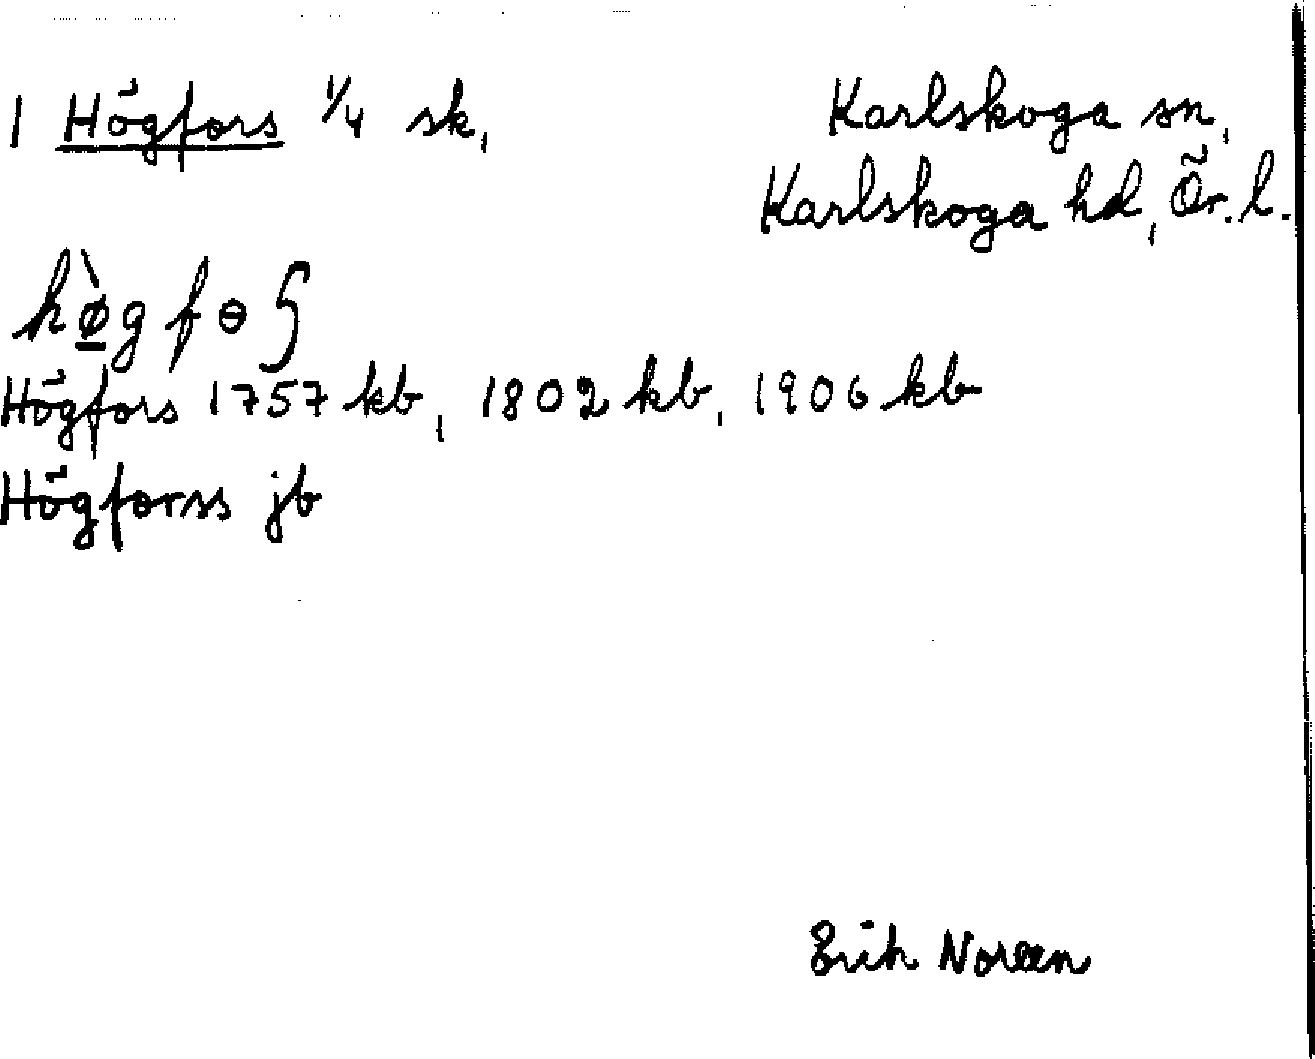 1 Högfors 1/4 sk,
Karlskoga sn,
Karlskoga hd, Ör. l.
hø̠̀gfɵʂ
Högfors 1757 kb, 1802 kb, 1906 kb
Högforss jb
Erik Noreen